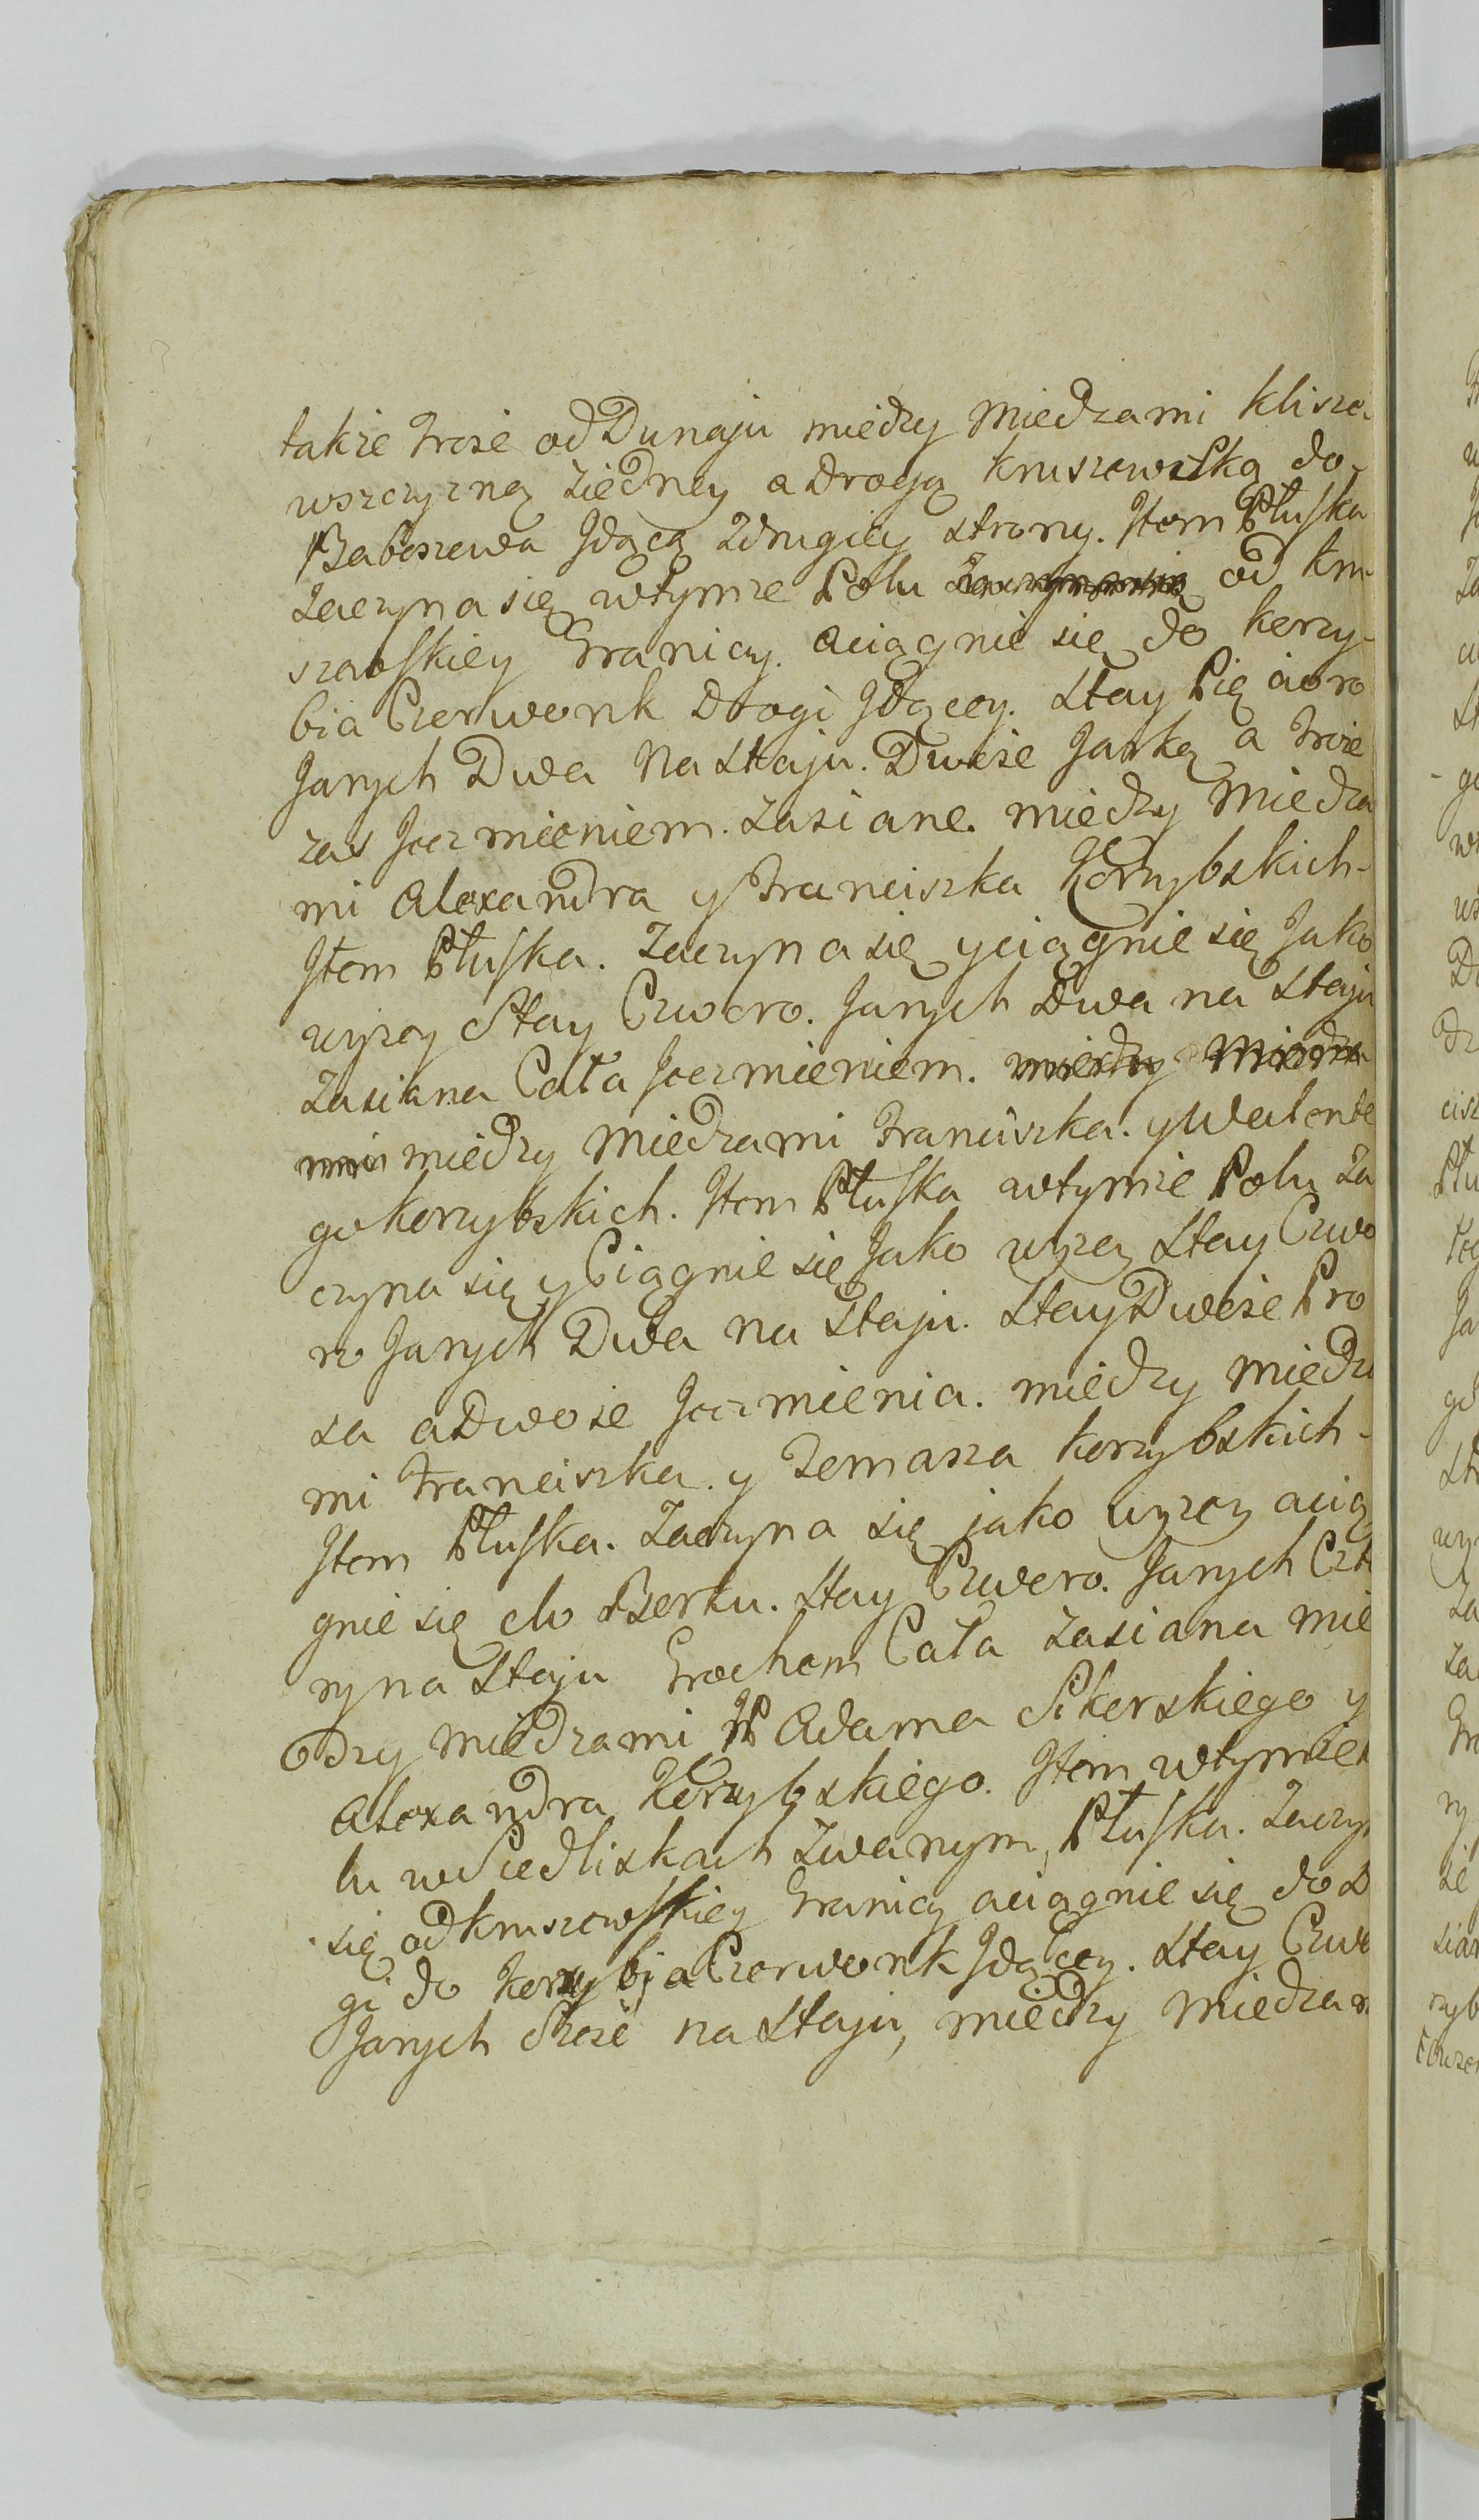 takze troie od Dunaju miedzy Miedzami Klisze
wszczyzną ziedney a Drogą Kruszewską do
Baboszewa Jdącą Zdrugiey strony. Jtem Płuska
Zaczyna się wtymze Polu od Kru-
szewskiey Granicy. aciągnie się do korzy-
bia Czerwonk Drogi Jdącey. Stay Pięcioro
Janych Dwa Na Staju. Dwoie Jarką a troie
zas Jęczmieniem. Zasiane. miedzy Miedza
mi Alexandra y Franciszka Korzybskich-
Jtem Płuska. Zaczyna się yciągnie się Jako
wyzey Stay Czworo. Janych Dwa na Staju
Zasiana Cała Jeczmieniem. miedzy Miedza
mi miedzy Miedzami Franciszka. y Walente
go korzybskich. Jtem Płuska wtymze Polu Za
czyna się y Ciągnie się Jako wyzey Stay Czwo
ro Janych Dwa na Staju. Stay Dwoie Pro
sa a Dwoie Jeczmienia. miedzy miedza
mi Franciszka. y Tomasza korzybskich-
Jtem Płuska. Zaczyna się jako wyzey acią
gnie się do Borku. Stay Czworo. Janych Czte
ry na Staju Grochem Cała zasiana mie
dzy Miedzami JP Adama Sikorskiego y
Alexandra Korzybskiego. Jtem wtymze
lu w Siedliskach Zwanym, Płuska. Zaczy
się od Kruszewskiey Granicy aciągnie się do D
gi do korzybia Czerwonk Jdącey. Stay Czwo
Janych Szesc na Staju, miedzy Miedzam